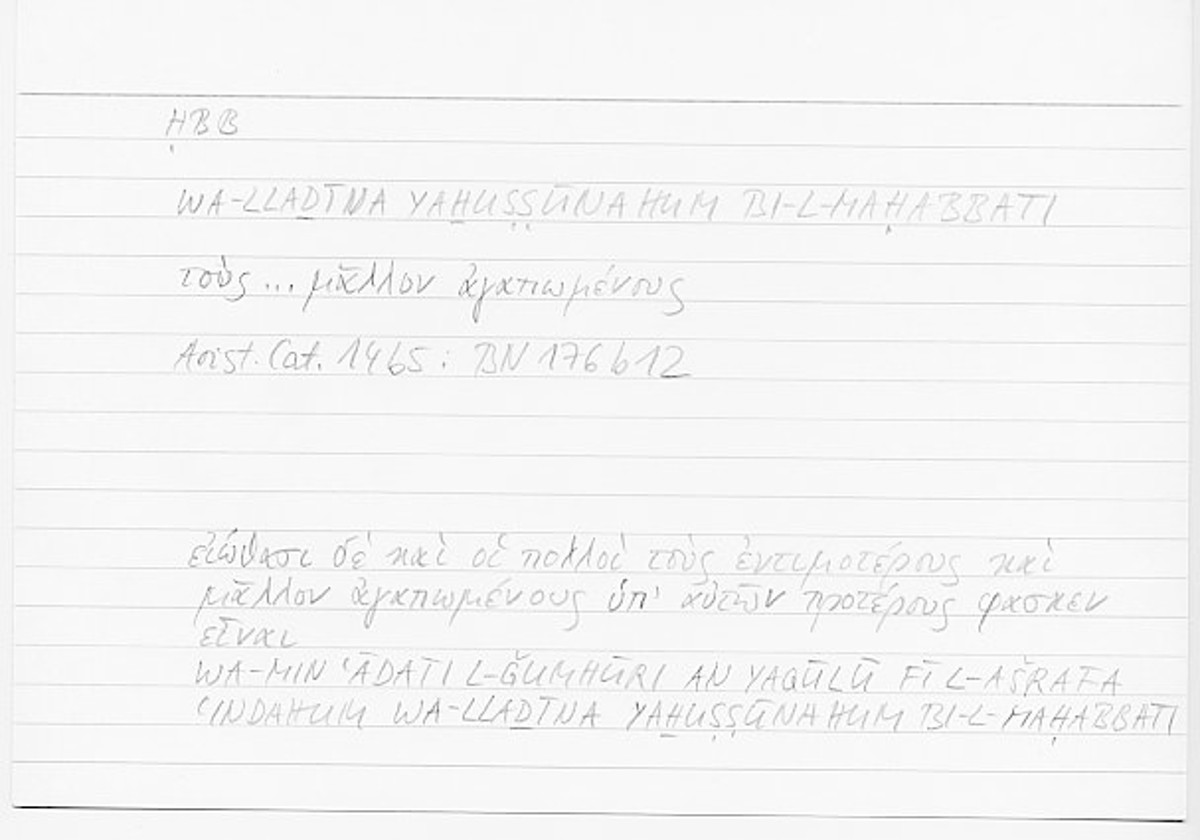 ḤBB
WA-LLAḎĪNA YAḪUṢṢŪNAHUM BI-L-MAḤABBATI
τοὺς ... μᾶλλον ἀγαπωμένους
Arist. Cat. 14b5 : BN 176b12
εἰώθασι δὲ καὶ οἱ πολλοὶ τοὺς ἐντιμοτέρους καὶ
μᾶλλον ἀγαπωμένους ὑπ' αὐτῶν προτέρους φασκεν
εἶναι
WA-MIN ʿĀDATI L-ǦUMHŪRI AN YAQŪLŪ FĪ L-AŠRAFA
ʿINDAHUM WA-LLAḎĪNA YAḪUṢṢŪNAHUM BI-L-MAḤABBATI